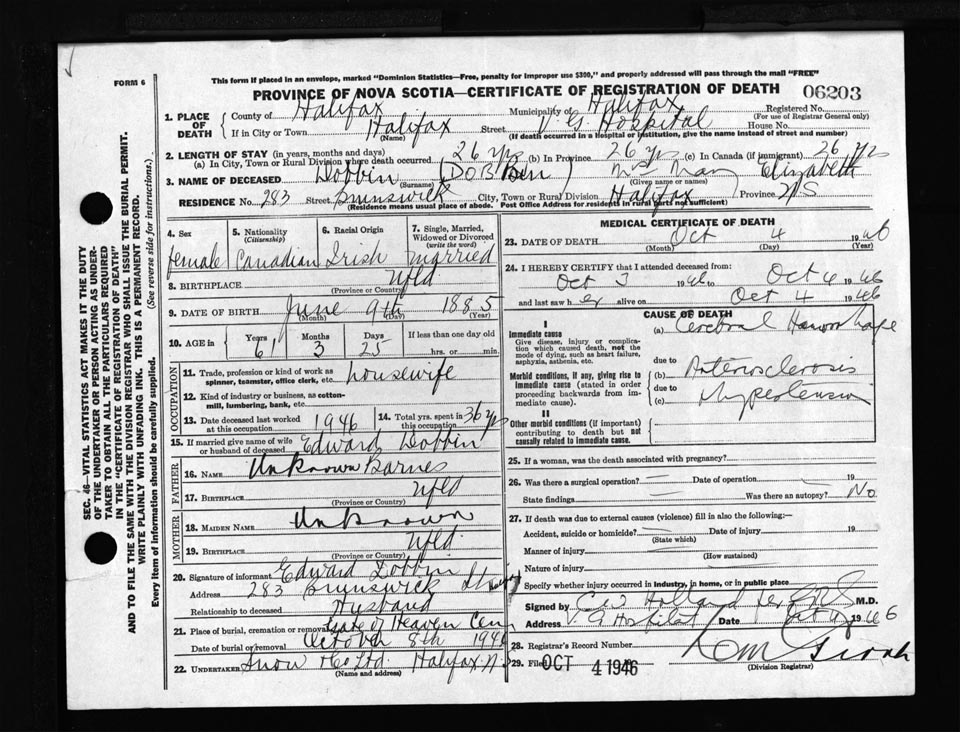 FORM 6
This form if placed in an envelope, marked "Dominion Statistics—Free, penalty for improper use $300," and properly addressed will pass through the mail "FREE"
PROVINCE OF NOVA SCOTIA—CERTIFICATE OF REGISTRATION OF DEATH 06203
1. PLACE OF DEATH
County of Halifax Municipality of Halifax Registered No.
(For use of Registrar General only)
If in City or Town Halifax Street V. G. Hospital House No.
(Name) (If death occurred in a Hospital or Institution, give the name instead of street and number)
2. LENGTH OF STAY (in years, months and days)
(a) In City, Town or Rural Division where death occurred 26 yrs (b) In Province 26 yrs (c) In Canada (if immigrant) 26 yrs
3. NAME OF DECEASED Dobbin (DOBBin) Mrs Mary Elizabeth
(Surname) (Given name or names)
RESIDENCE No. 283 Street Brunswick City, Town or Rural Division Halifax Province N S
(Residence means usual place of abode. Post Office Address for residents in rural parts not sufficient)
4. Sex female
5. Nationality (Citizenship) Canadian
6. Racial Origin Irish
7. Single, Married, Widowed or Divorced (write the word) married
8. BIRTHPLACE Nfld
(Province or Country)
9. DATE OF BIRTH June 9th 1885
(Month) (Day) (Year)
10. AGE in Years 61 Months 3 Days 25 If less than one day old
hrs. or min.
OCCUPATION
11. Trade, profession or kind of work as spinner, teamster, office clerk, etc. housewife
12. Kind of industry or business, as cotton-mill, lumbering, bank, etc.
13. Date deceased last worked at this occupation 1946
14. Total yrs. spent in this occupation 36 yrs
15. If married give name of wife or husband of deceased Edward Dobbin
FATHER
16. NAME Unknown Barnes
17. BIRTHPLACE Nfld
(Province or Country)
MOTHER
18. MAIDEN NAME Unknown
19. BIRTHPLACE Nfld.
(Province or Country)
20. Signature of informant Edward Dobbin
Address 283 Brunswick Street
Relationship to deceased Husband
21. Place of burial, cremation or removal Gate of Heaven Cem
Date of burial or removal October 8th 1946
22. UNDERTAKER Snow & Co Ltd. Halifax N.S
(Name and address)
MEDICAL CERTIFICATE OF DEATH
23. DATE OF DEATH Oct 4 1946
(Month) (Day) (Year)
24. I HEREBY CERTIFY that I attended deceased from:
Oct 3 1946 to Oct 4 1946
and last saw her alive on Oct 4 1946
CAUSE OF DEATH
I
Immediate cause
Give disease, injury or complication which caused death, not the mode of dying, such as heart failure, asphyxia, asthenia, etc.
(a) Cerebral Hemorrhage
due to
Morbid conditions, if any, giving rise to immediate cause (stated in order proceeding backwards from immediate cause).
(b) Arteriosclerosis
due to
(c) Hypertension
II
Other morbid conditions (if important) contributing to death but not causally related to immediate cause.
25. If a woman, was the death associated with pregnancy?
26. Was there a surgical operation? — Date of operation — 19
State findings — Was there an autopsy? No
27. If death was due to external causes (violence) fill in also the following:—
Accident, suicide or homicide? Date of injury 19
(State which)
Manner of injury
(How sustained)
Nature of injury
Specify whether injury occurred in industry, in home, or in public place
Signed by C W Holland M.D.
Address V. G Hospital Date Oct 4 1946
28. Registrar's Record Number
29. Filed OCT 4 1946
(Division Registrar)
SEC. 46—VITAL STATISTICS ACT MAKES IT THE DUTY
OF THE UNDERTAKER OR PERSON ACTING AS UNDER-
TAKER TO OBTAIN ALL THE PARTICULARS REQUIRED
IN THE "CERTIFICATE OF REGISTRATION OF DEATH"
AND TO FILE THE SAME WITH THE DIVISION REGISTRAR WHO SHALL ISSUE THE BURIAL PERMIT.
WRITE PLAINLY WITH UNFADING INK. THIS IS A PERMANENT RECORD.
Every item of information should be carefully supplied. (See reverse side for instructions.)